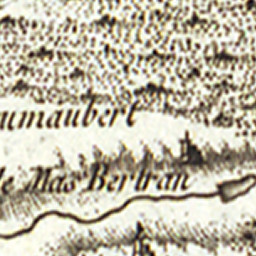 umaubert
le Mas Bertran